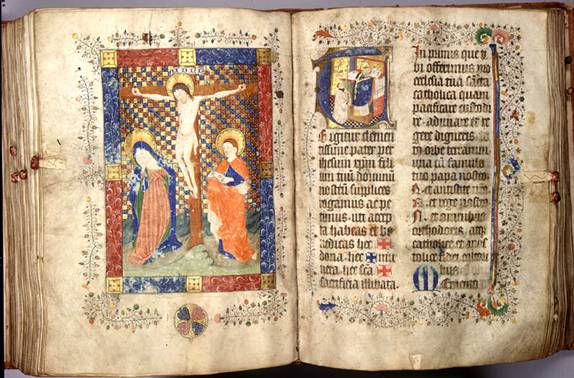 E igitur clemen
tissime pater per
ihesum xpm fili
um tuū dominū
nostrū supplices
rogamus ac pe
timus. uti accep
ta habeas et be
nedicas hec ✠
dona. hec ✠ mu
nera. hec sca ✠
sacrificia illibata.
In primis que ti
bi offerimus pro
ecclesia tua sca
catholica quam
pacificare custodi
re. adunare et re
gere digneris
to orbe terrarum
una cū famulo
tuo papa nostro
N. et antistite nro
N. et rege nostro
N. et omnibus
orthodoxis. atqꝫ
catholice et apos
tolice fidei cultori
bus.
Memento